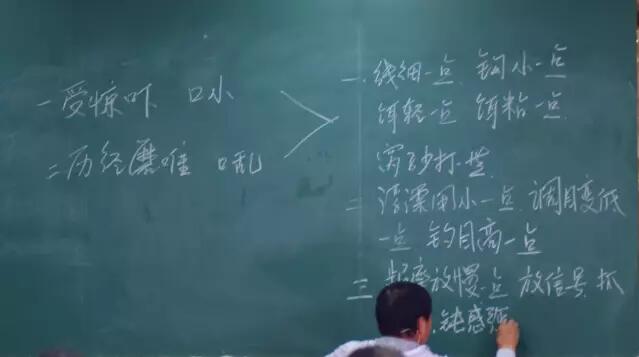 一受惊吓 口小
二历经磨难 口乱
一.线细一点 钩小一点
饵轻一点 饵粘一点
打
二 漂用小一点 调目变低
一点 钓目高一点
三 频率放慢一点 放信号抓
钝感